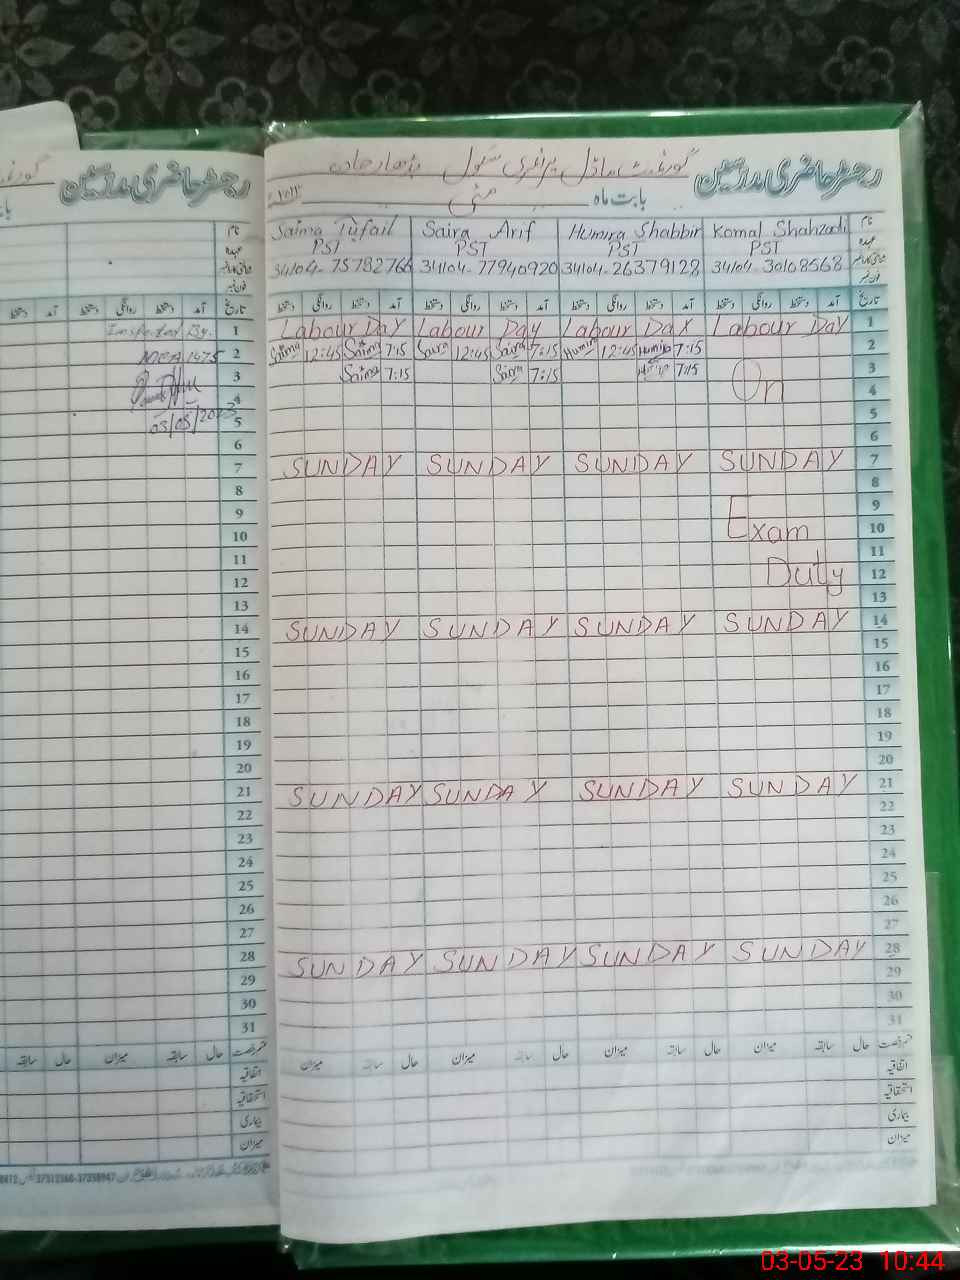 رجسٹر حاضری مدرسین
گورنمنٹ ماڈل پرائمری سکول
بابت ماہ مئی
نام Komal Shahzadi Humira Shabbir Saira Arif Saima Tufail
عہدہ PST PST PST PST
34104-30108568 34104-26379128 34104-77940920 34104-75782766
تاریخ آمد دستخط روانگی دستخط آمد دستخط روانگی دستخط آمد دستخط روانگی دستخط آمد دستخط روانگی دستخط
1 Labour Day Labour Day Labour Day Labour Day
2 7:15 Humira 12:45 Humira 7:15 Saira 12:45 Saira 7:15 Saima 12:45 Saima
3 7:15 7:15 Saira 7:15 Saima
On
4
5
6
7 SUNDAY SUNDAY SUNDAY SUNDAY
8
9
10 Exam
11
12 Duty
13
14 SUNDAY SUNDAY SUNDAY SUNDAY
15
16
17
18
19
20
21 SUNDAY SUNDAY SUNDAY SUNDAY
22
23
24
25
26
27
28 SUNDAY SUNDAY SUNDAY SUNDAY
29
30
31
حال سابقہ میزان حال سابقہ میزان حال سابقہ میزان حال سابقہ میزان
اتفاقیہ
استحقاقیہ
بیماری
میزان
رجسٹر حاضری مدرسین
نام
عہدہ
تاریخ آمد دستخط روانگی دستخط آمد دستخط
1 Inspected By.
2 MEA 1475
3
4
5 03/05/2023
6
7
8
9
10
11
12
13
14
15
16
17
18
19
20
21
22
23
24
25
26
27
28
29
30
31
حال سابقہ میزان حال سابقہ
اتفاقیہ
استحقاقیہ
بیماری
میزان
03-05-23 10:44